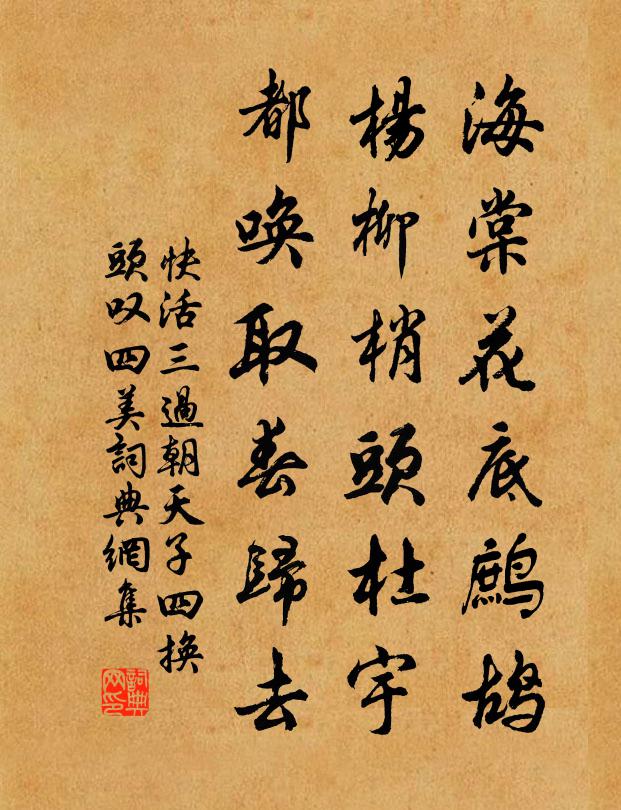 海棠花底鷓鴣
楊柳梢頭杜宇
都喚取春歸去
快活三過朝天子四換
頭叹四美詞典網集
詞典网印